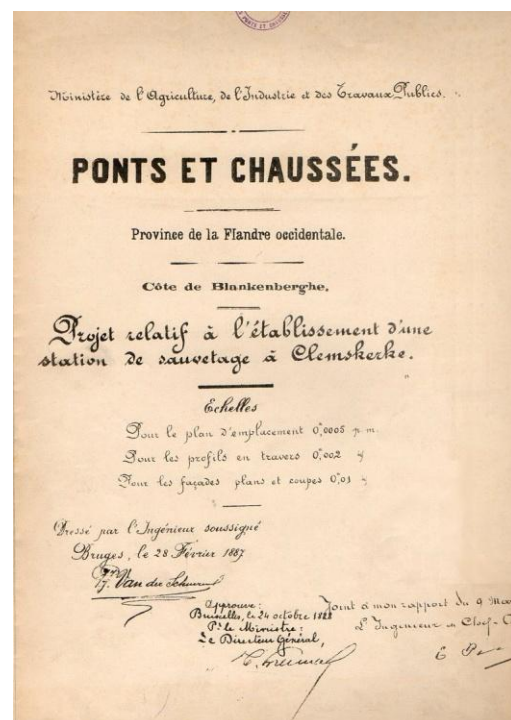 PONTS ET CHAUSSÉES
Ministère de l'Agriculture, de l'Industrie et des Travaux Publics.
PONTS ET CHAUSSÉES.
Province de la Flandre occidentale.
Côte de Blankenberghe.
Projet relatif à l'établissement d'une
station de sauvetage à Clemskerke.
Echelles
Pour le plan d'emplacement 0,0005 p.m.
Pour les profils en travers 0,002 "
Pour les façades plans et coupes 0,01 "
Dressé par l'Ingénieur soussigné
Bruges, le 28 Février 1887
Approuvé:
Bruxelles, le 24 octobre 1888
Pr le Ministre:
Le Directeur Général,
Joint à mon rapport du 9 Ma
L'Ingénieur en Chef